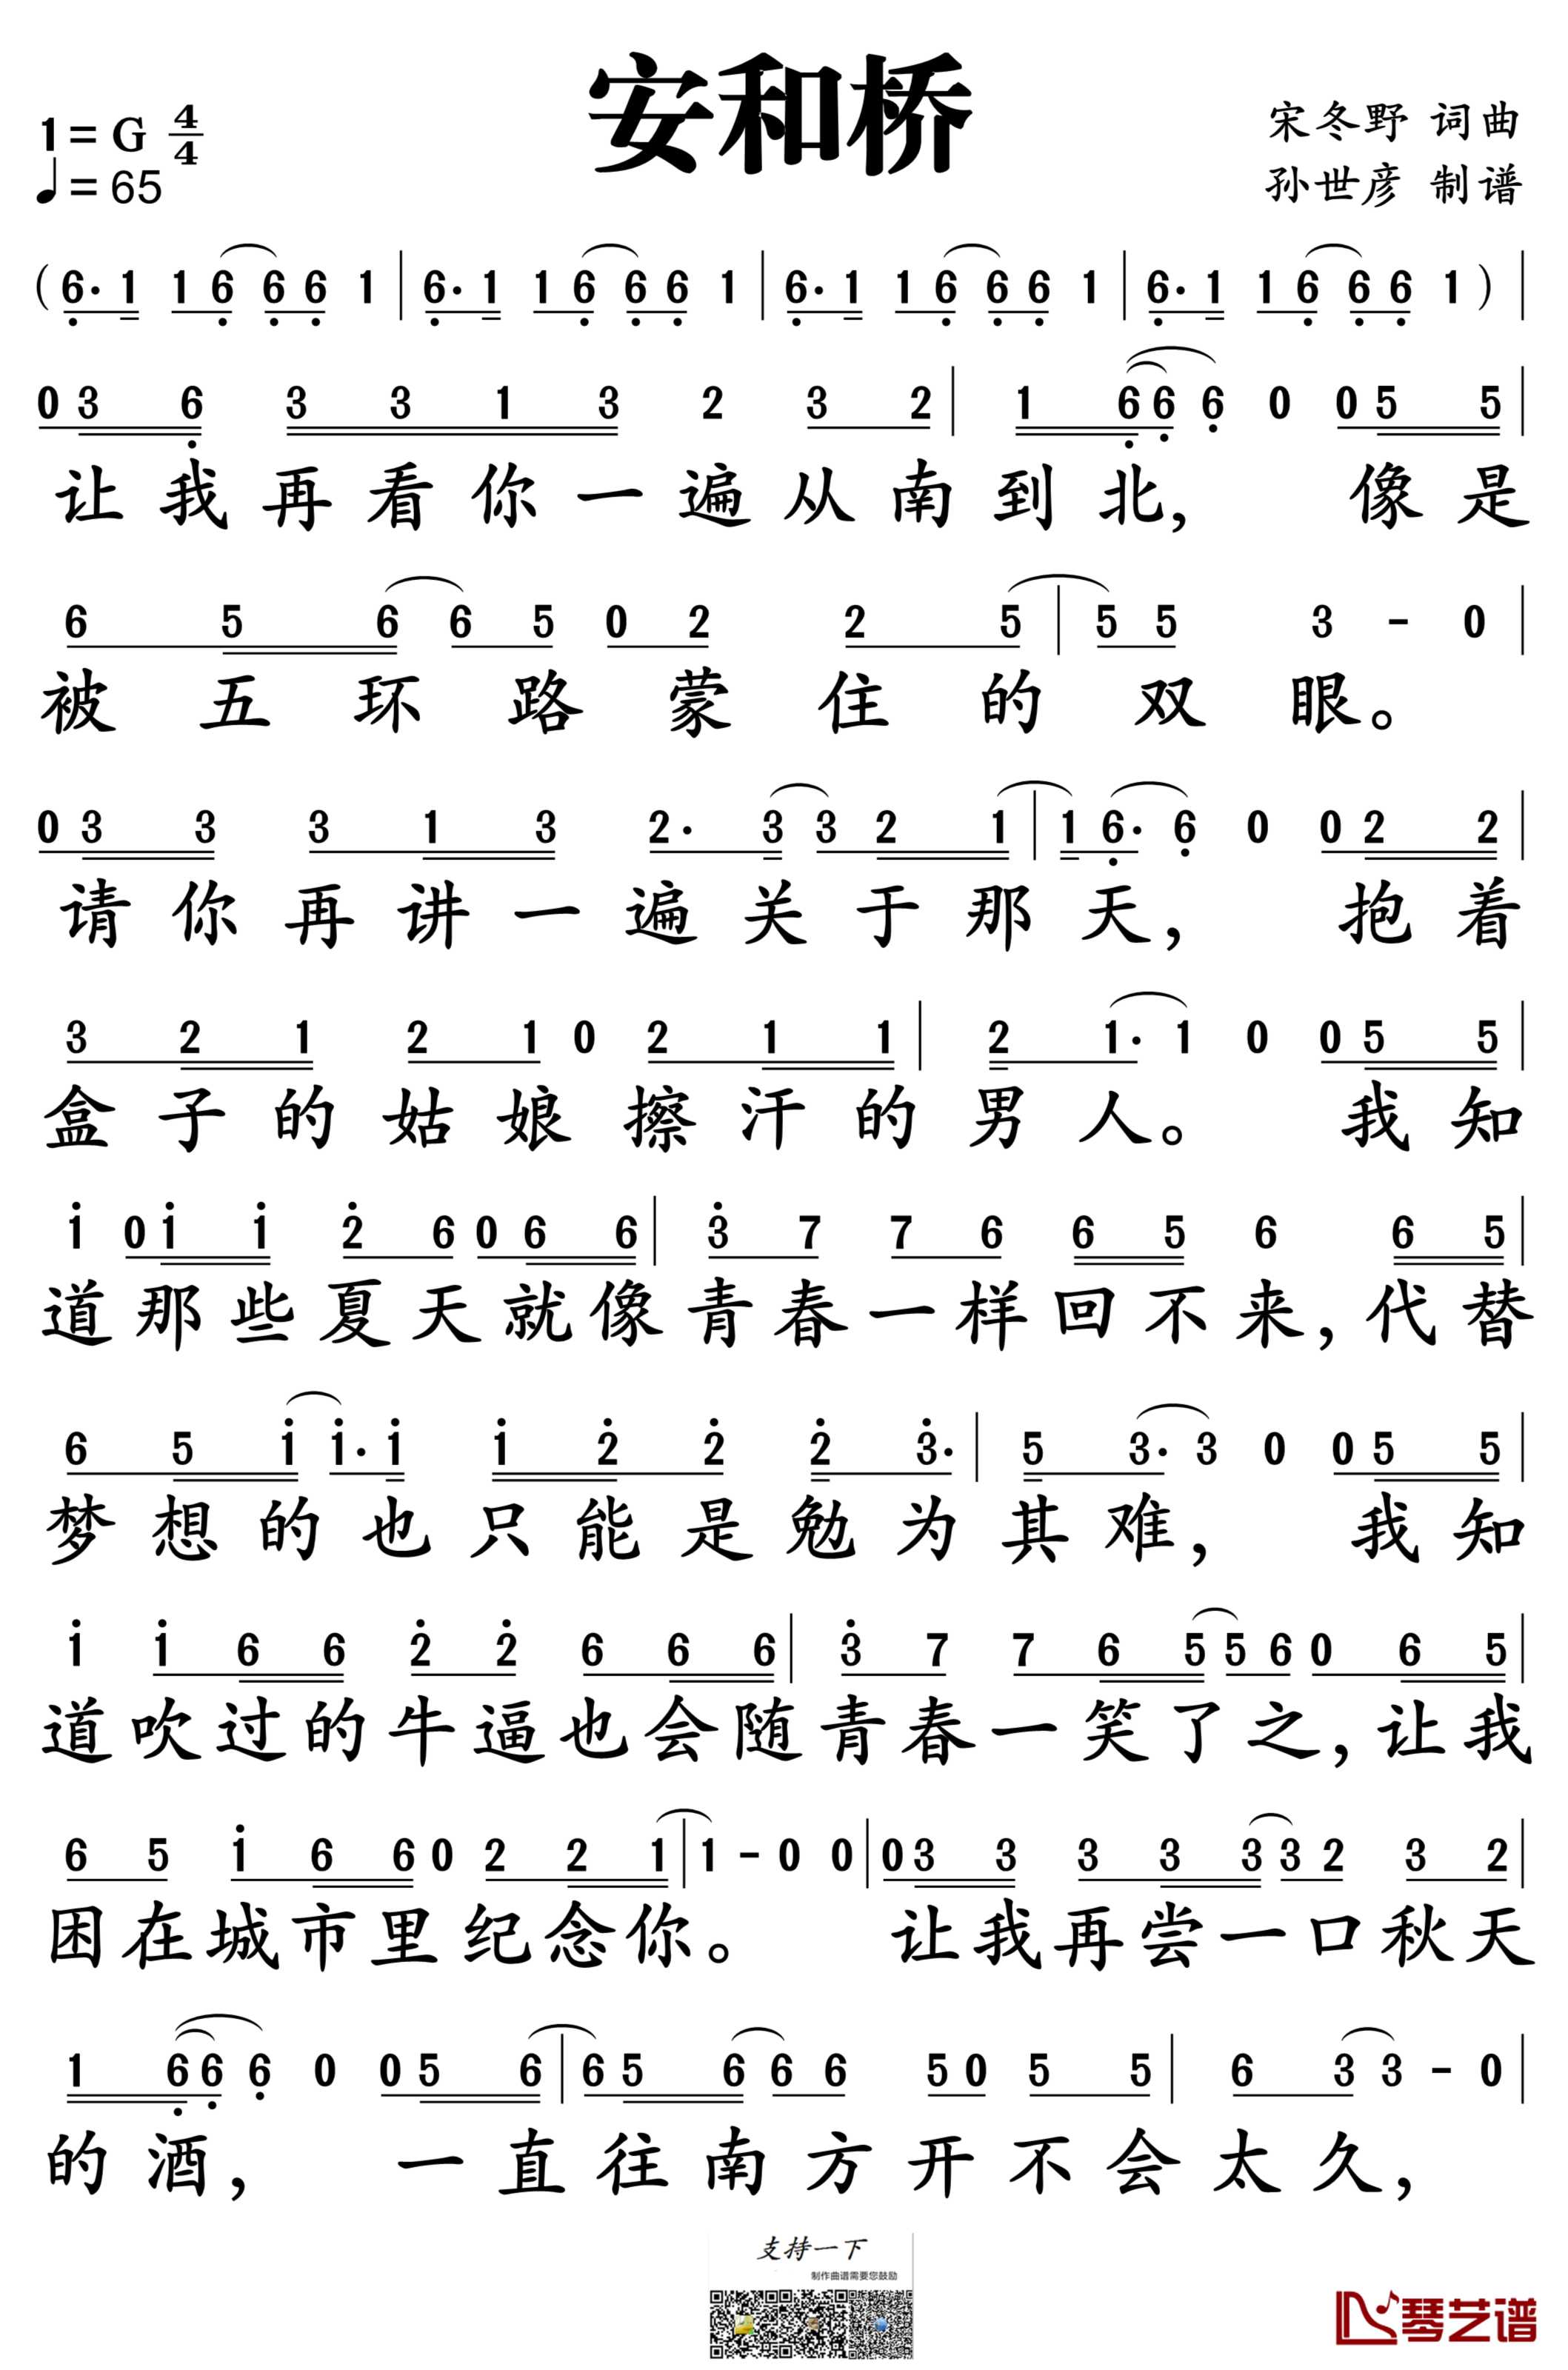 安和桥
1=G 4/4
♩=65
宋冬野 词曲
孙世彦 制谱
(6. 1 1 6 6 6 1 | 6. 1 1 6 6 6 1 | 6. 1 1 6 6 6 1 | 6. 1 1 6 6 6 1) |
0 3 6 3 3 1 3 2 3 2 | 1 6 6 6 0 0 5 5 |
让我再看你一遍从南到北, 像是
6 5 6 6 5 0 2 2 5 | 5 5 3 - 0 |
被五环路蒙住的双眼。
0 3 3 3 1 3 2. 3 3 2 1 | 1 6. 6 0 0 2 2 |
请你再讲一遍关于那天, 抱着
3 2 1 2 1 0 2 1 1 | 2 1. 1 0 0 5 5 |
盒子的姑娘擦汗的男人。 我知
i 0 i i 2̇ 6 0 6 6 | 3̇ 7 7 6 6 5 6 6 5 |
道那些夏天就像青春一样回不来, 代替
6 5 i i. i i 2̇ 2̇ 2̇ 3̇. | 5 3. 3 0 0 5 5 |
梦想的也只能是勉为其难, 我知
i i 6 6 2̇ 2̇ 6 6 6 | 3̇ 7 7 6 5 5 6 0 6 5 |
道吹过的牛逼也会随青春一笑了之, 让我
6 5 i 6 6 0 2 2 1 | 1 - 0 0 | 0 3 3 3 3 3 3 2 3 2 |
困在城市里纪念你。 让我再尝一口秋天
1 6 6 6 0 0 5 6 | 6 5 6 6 6 5 0 5 5 | 6 3 3 - 0 |
的酒, 一直往南方开不会太久,
支持一下
制作曲谱需要您鼓励
琴艺谱